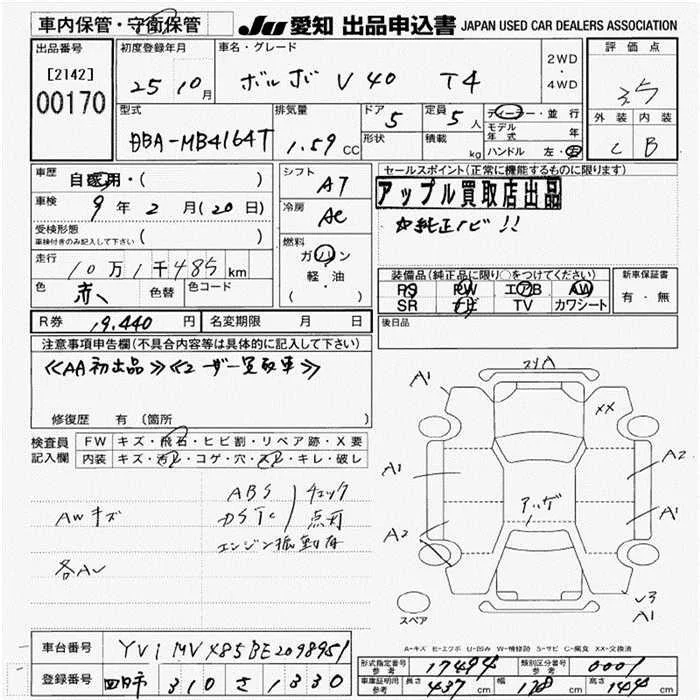 車内保管・守衛保管
JU 愛知 出品申込書 JAPAN USED CAR DEALERS ASSOCIATION
出品番号 [2142] 00170
初度登録年月 25 10月
車名・グレード ボルボ V40 T4
2WD・4WD
評価点 3.5
外装 C 内装 B
型式 DBA-MB4164T
排気量 1.59 CC
ドア 5
形状
定員 5人
積載 kg
ディーラー・並行
モデル年式 年
ハンドル 左・右
車歴 自家用・( )
車検 9年2月(20日)
受検形態 車検付きのみ記入して下さい ( )
走行 10万1千485km
色 赤 色替 色コード
シフト AT
冷房 AC
燃料 ガソリン 軽・油 ( )
セールスポイント(正常に機能するものに限ります)
アップル買取店出品
☆純正ナビ!!
装備品(純正品に限り○をつけてください)
PS PW エアB AW
SR ナビ TV カワシート
新車保証書 有・無
R券 19,440円 名変期限 月 日
後日品
注意事項申告欄(不具合内容等は具体的に記入して下さい)
≪AA初出品≫≪ユーザー買取車≫
修復歴 有 (箇所
検査員記入欄
FW キズ・飛石・ヒビ割・リペア跡・X要
内装 キズ・汚レ・コゲ・穴・スレ・キレ・破レ
AWキズ
各AU
ABS
DSTC
チェック
点灯
エンジン振動有
A1
XX
A1
A2
アッゲ
A2
A1
A1
スペア
A=キズ E=エクボ U=凹み W=補修跡 S=サビ C=腐食 XX=交換済
車台番号 YV1MV485BE2098951
登録番号 310 さ 1330
形式指定番号 参考 17494
類別区分番号 参考 0001
車庫証明用 参考 長さ 437 cm 幅 178 cm 高さ 144 cm